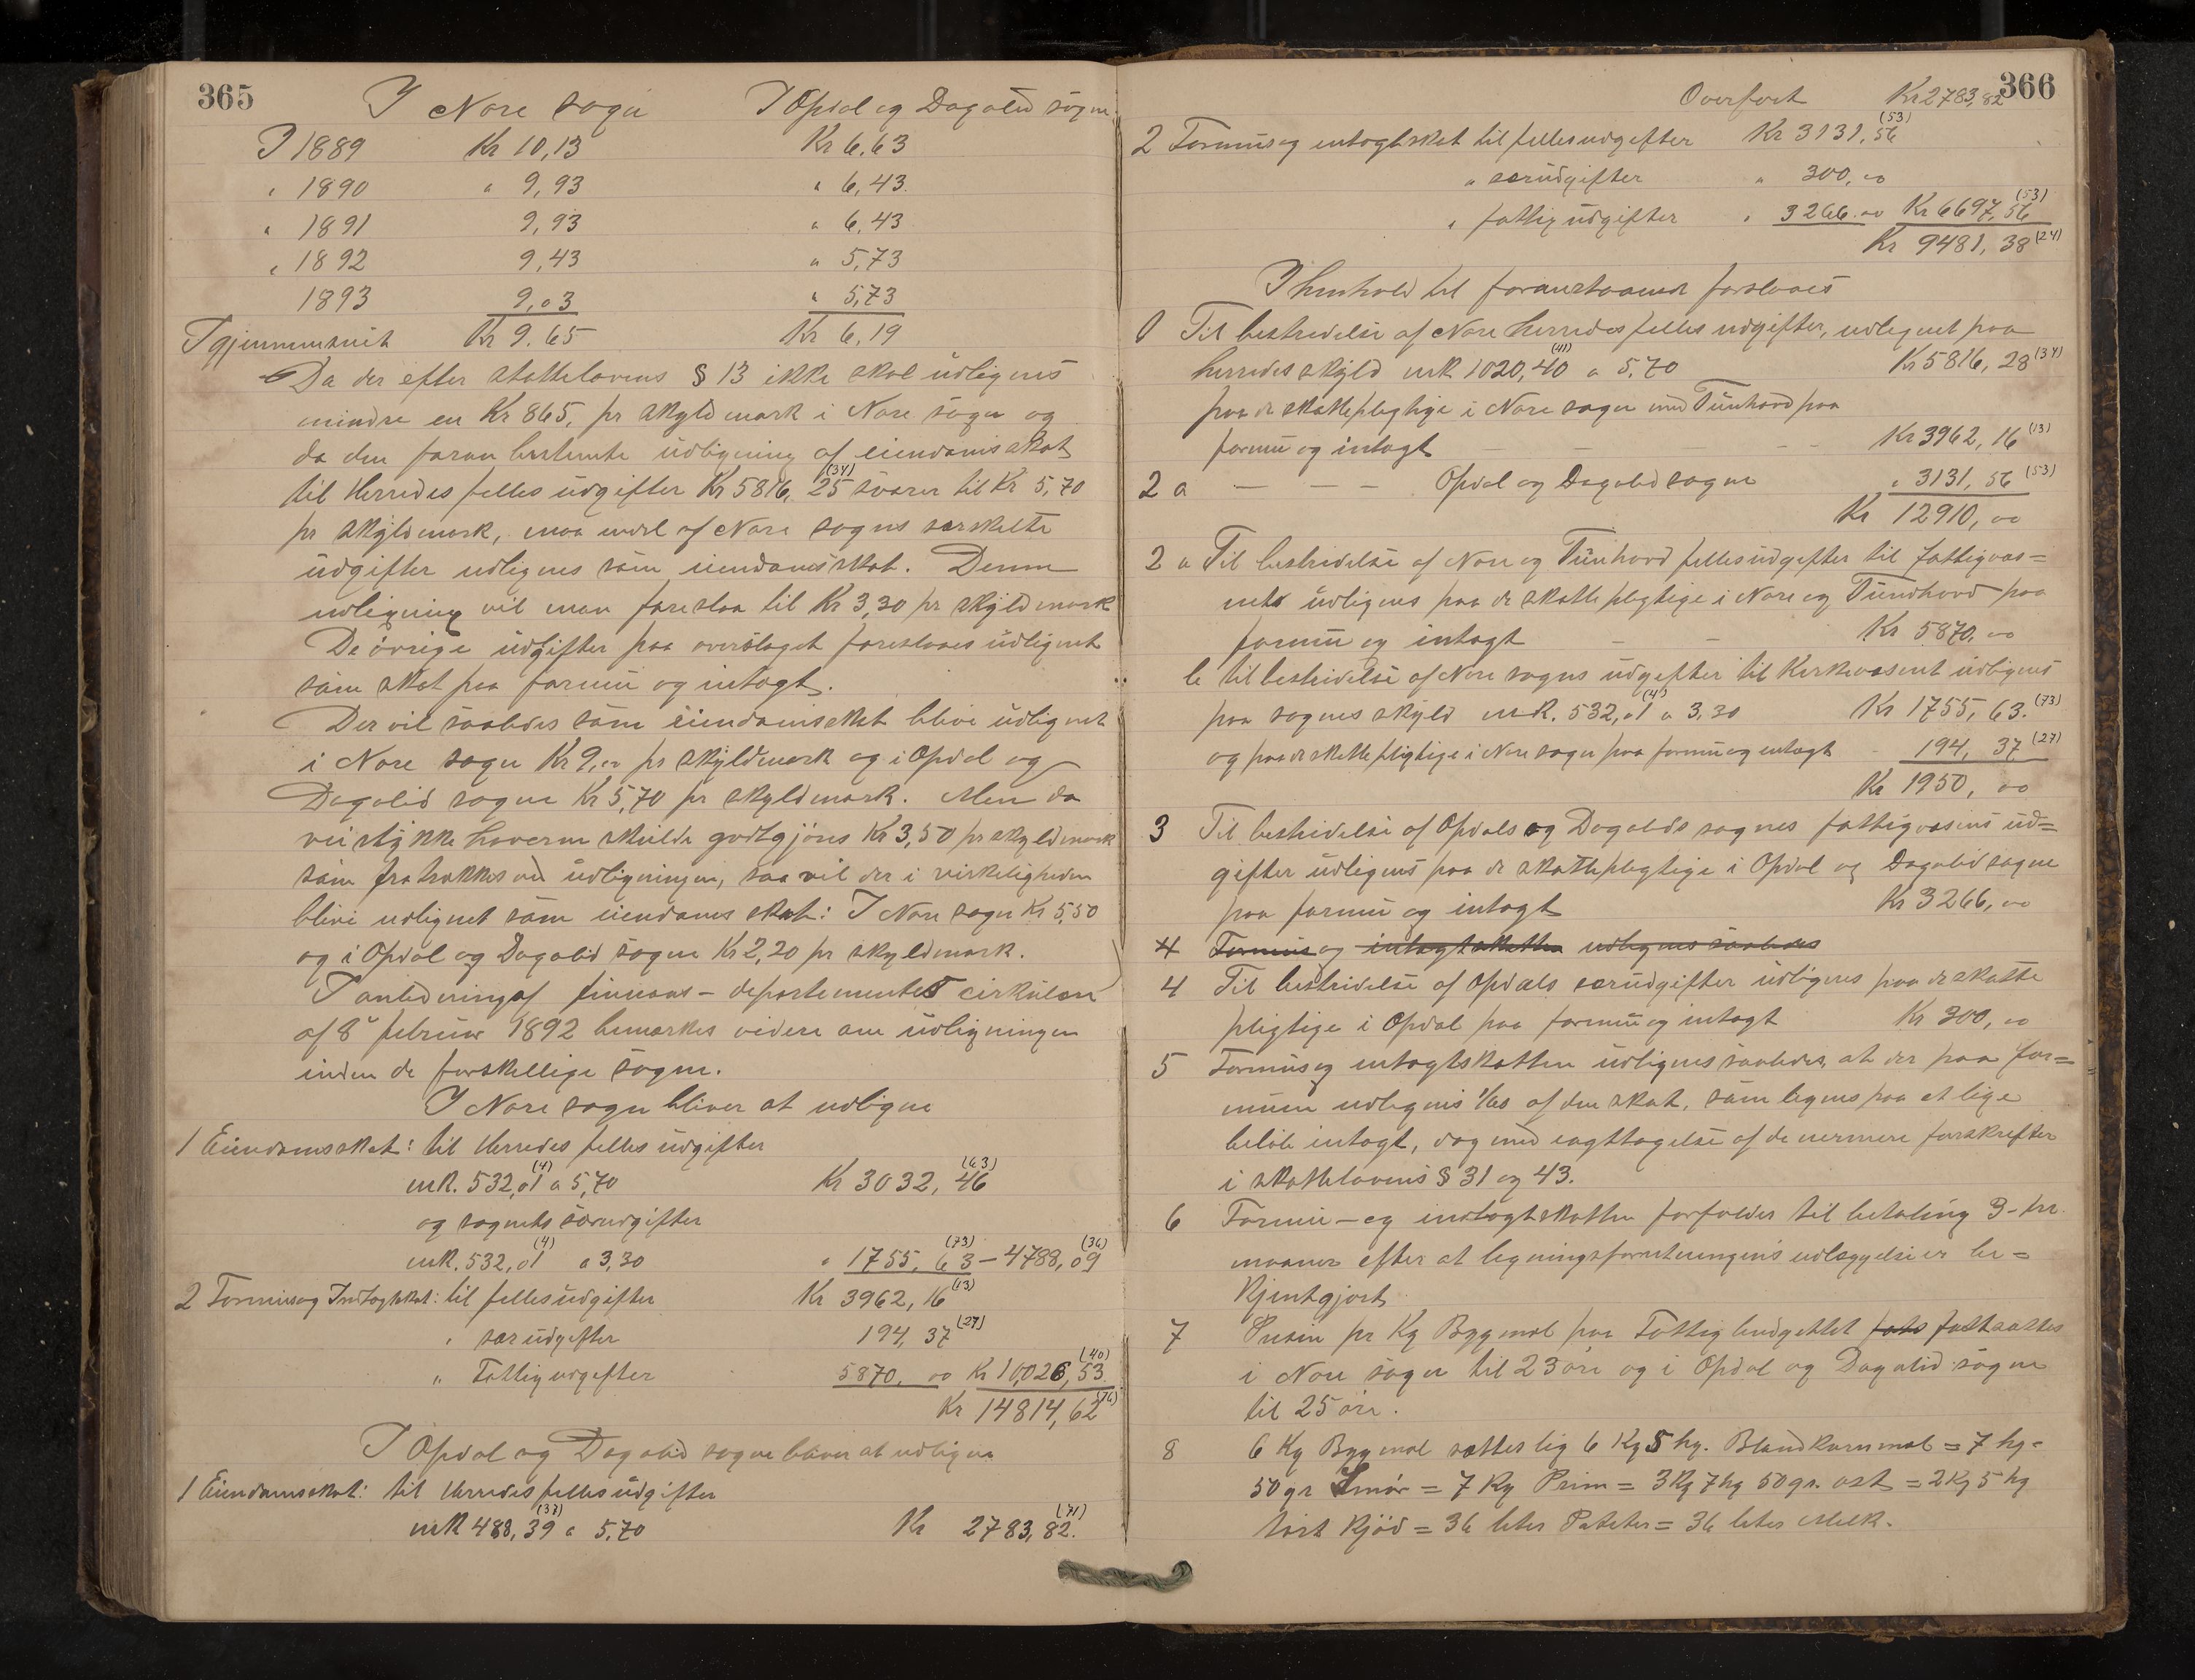 365
I Nore sogn I Opdal og Dagalid sogne
I 1889 Kr 10,13 Kr 6,63
" 1890 " 9,93 " 6,43
" 1891 9,93 " 6,43
" 1892 9,43 " 5,73
1893 9,03 " 5,73
I gjennemsnit Kr 9.65 Kr 6,19
Da der efter skattelovens § 13 ikke skal udlignes
mindre en Kr 865, pr skyldmark i Nore sogn og
da den foran bestemte udligning af eiendomsskat
til Herredes felles udgifter Kr 5816, 25 (34) svarer til Kr 5,70
pr skyldmark, maa endel af Nore sogns særskilte
udgifter udlignes som eiendomsskat. Denne
udligning vil man foreslaa til Kr 3,30 pr skyldmark
De övrige udgifter paa overslaget foreslaaes udlignet
som skat paa formue og intægt.
Der vil saaledes som eiendomsskat blive udlignet
i Nore sogn Kr 9,00 pr skyldmark og i Opdal og
Dagalid sogne Kr 5,70 pr skyldmark. Men da
veistykke haverne skulde godtgjöres Kr 3,50 pr skyldmark
som fratrækkes ved udligningen, saa vil der i virkeligheden
blive udlignet som eiendoms skat: I Nore sogn Kr 5,50
og i Opdal og Dagalid sogne Kr 2,20 pr skyldmark.
I anledning af finans-departementets cirkulær
af 8 februar 1892 bemærkes videre om udligningen
inden de forskellige sogne.
I Nore sogn bliver at udligne
1 Eiendomsskat: til Herredes felles udgifter
mk. 532,01 (4) a 5,70 Kr 3032, 46 (63)
og sognets særudgifter
mk. 532,01 (4) a 3,30 " 1755, 63 (73) - 4788,09 (36)
2 Formue og Indtægtskat: til felles udgifter Kr 3962, 16 (13)
" særudgifter 194, 37 (27)
" Fattigudgifter 5870, 00 Kr 10,026,53 (40)
Kr 14814,62 (76)
I Opdal og Dagalid sogne bliver at udligne
1 Eiendomsskat: til Herredes felles udgifter
mk 488,39 (37) a 5,70 Kr 2783,82. (71)
366
Overfört Kr 2783,82
2 Formue og intægtskat til felles udgifter Kr 3131,56 (53)
" særudgifter " 300,00
" fattigudgifter " 3266.00 Kr 6697,56 (53)
Kr 9481,38 (24)
I henhold til foranstaaende forslaaes
1 Til bestridelse af Nore Herredes felles udgifter, udlignet paa
herredes skyld mk 1020,40 (41) a 5.70 Kr 5816,28 (34)
paa de skattepligtige i Nore sogn med Tunhovd paa
formue og intægt - - - Kr 3962,16 (13)
2 a - - - Opdal og Dagalid sogne " 3131,56 (53)
Kr 12910,00
2 a Til bestridelse af Nore og Tunhovd felles udgifter til fattigvæs=
nets udlignes paa de skattepligtige i Nore og Tunhovd paa
formue og intægt - - Kr 5870,00
b til bestridelse af Nore sogns udgifter til Kirkevæsent udlignes
paa sognes skyld mk. 532,01 (4) a 3,30 Kr 1755,63. (73)
og paa de skattepligtige i Nore sogn paa formue og intægt - 194, 37 (27)
Kr 1950,00
3 Til bestridelse af Opdals og Dagalids sognes fattigvæsens ud=
gifter udlignes paa de skattepligtige i Opdal og Dagalid sogne
paa formue og intægt Kr 3266,00
4 Formue og intægtskatten udlignes saaledes
4 Til bestridelse af Opdals særudgifter udlignes paa de skatte
pligtige i Opdal paa formue og intægt Kr 300,00
5 Formue og intægtskatten udlignes saaledes, at der paa for=
muen udlignes 1/60 af den skat, som lignes paa et lige
beløb intægt, dog med iagttagelse af de nermere forskrefter
i skattelovens § 31 og 43.
6 Formue- og instægtskatten forfalder til betaling 3-tre
maaner efter at ligningsforretningens udlæggelse er be=
kjentgjort
7 Prisen pr Kg Bygmel paa Fattigbudgettet fats fastsættes
i Nore sogn til 23 öre og i Opdal og Dagalid sogne
til 25 öre.
8 6 Kg Bygmel sættes lig 6 Kg 5 hg. Blandkornmel = 7 hg.
50 gr Smör = 7 Kg Prim = 3 Kg 7 hg 50 gr. ost = 2 Kg 5 hg
tört Kjöd = 36 liter Poteter = 36 liter Melk.